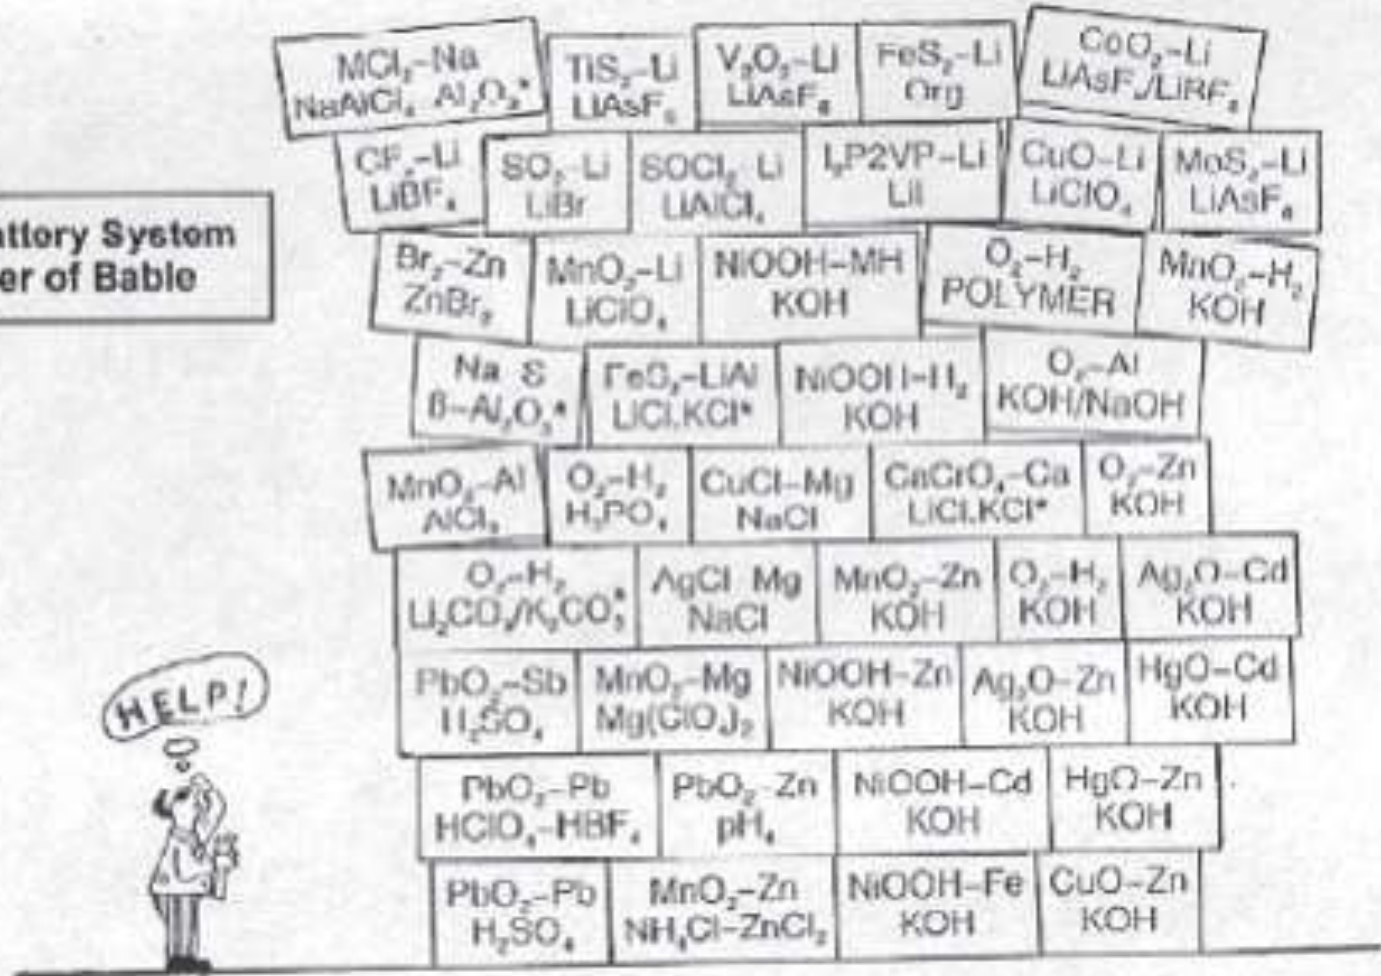 MCl₂–Na
NaAlCl₄ Al₂O₃*
TiS₂–Li
LiAsF₆
V₂O₅–Li
LiAsF₆
FeS₂–Li
Org
CoO₂–Li
LiAsF₆/LiRF₆
CFₓ–Li
LiBF₄
SO₂–Li
LiBr
SOCl₂ Li
LiAlCl₄
I₂P2VP–Li
LiI
CuO–Li
LiClO₄
MoS₂–Li
LiAsF₆
attery System
er of Bable
Br₂–Zn
ZnBr₂
MnO₂–Li
LiClO₄
NiOOH–MH
KOH
O₂–H₂
POLYMER
MnO₂–H₂
KOH
Na S
β–Al₂O₃*
FeS₂–LiAl
LiCl.KCl*
NiOOH–H₂
KOH
O₂–Al
KOH/NaOH
MnO₂–Al
AlCl₃
O₂–H₂
H₃PO₄
CuCl–Mg
NaCl
CaCrO₄–Ca
LiCl.KCl*
O₂–Zn
KOH
O₂–H₂
Li₂CO₃/K₂CO₃*
AgCl Mg
NaCl
MnO₂–Zn
KOH
O₂–H₂
KOH
Ag₂O–Cd
KOH
HELP!
PbO₂–Sb
H₂SO₄
MnO₂–Mg
Mg(ClO₄)₂
NiOOH–Zn
KOH
Ag₂O–Zn
KOH
HgO–Cd
KOH
PbO₂–Pb
HClO₄–HBF₄
PbO₂ Zn
pH₄
NiOOH–Cd
KOH
HgO–Zn
KOH
PbO₂–Pb
H₂SO₄
MnO₂–Zn
NH₄Cl–ZnCl₂
NiOOH–Fe
KOH
CuO–Zn
KOH